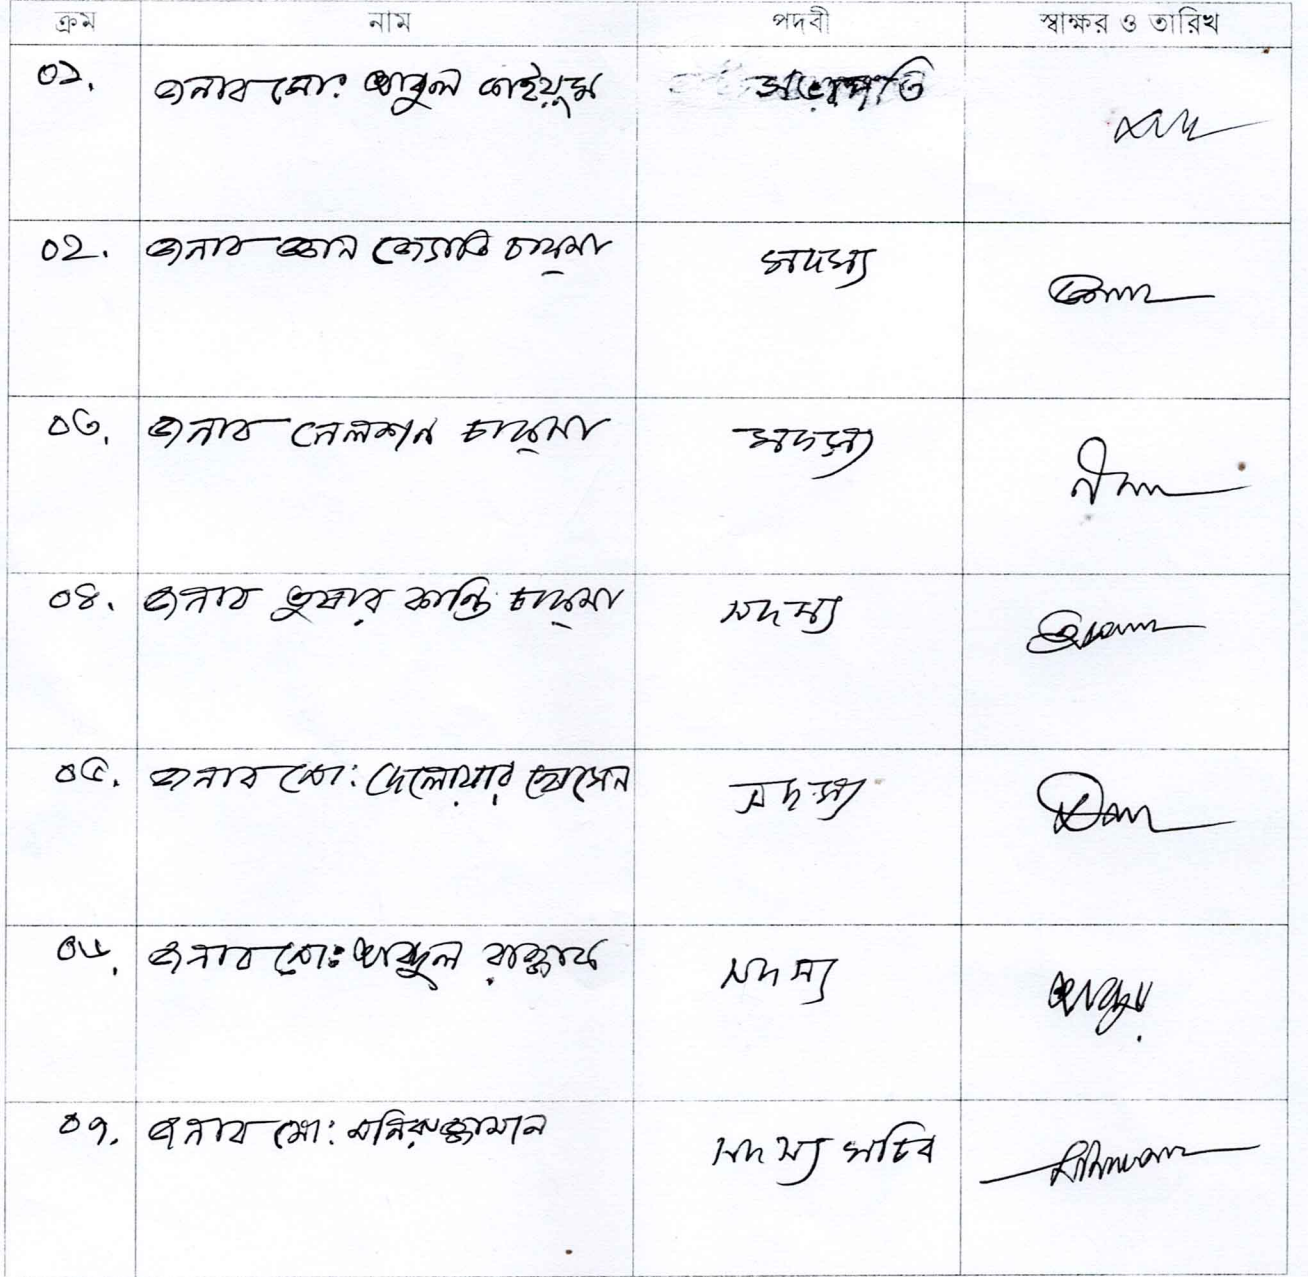 ক্রম নাম পদবী স্বাক্ষর ও তারিখ
০১. জনাব মো: আবুল কাইয়ুম সভাপতি
০২. জনাব জ্ঞান জ্যোতি চাকমা সদস্য
০৩. জনাব নেলশন চাকমা সদস্য
০৪. জনাব তুষার কান্তি চাকমা সদস্য
০৫. জনাব মো: দেলোয়ার হোসেন সদস্য
০৬. জনাব মো: আব্দুল রাজ্জাক সদস্য
০৭. জনাব মো: মনিরুজ্জামান সদস্য সচিব